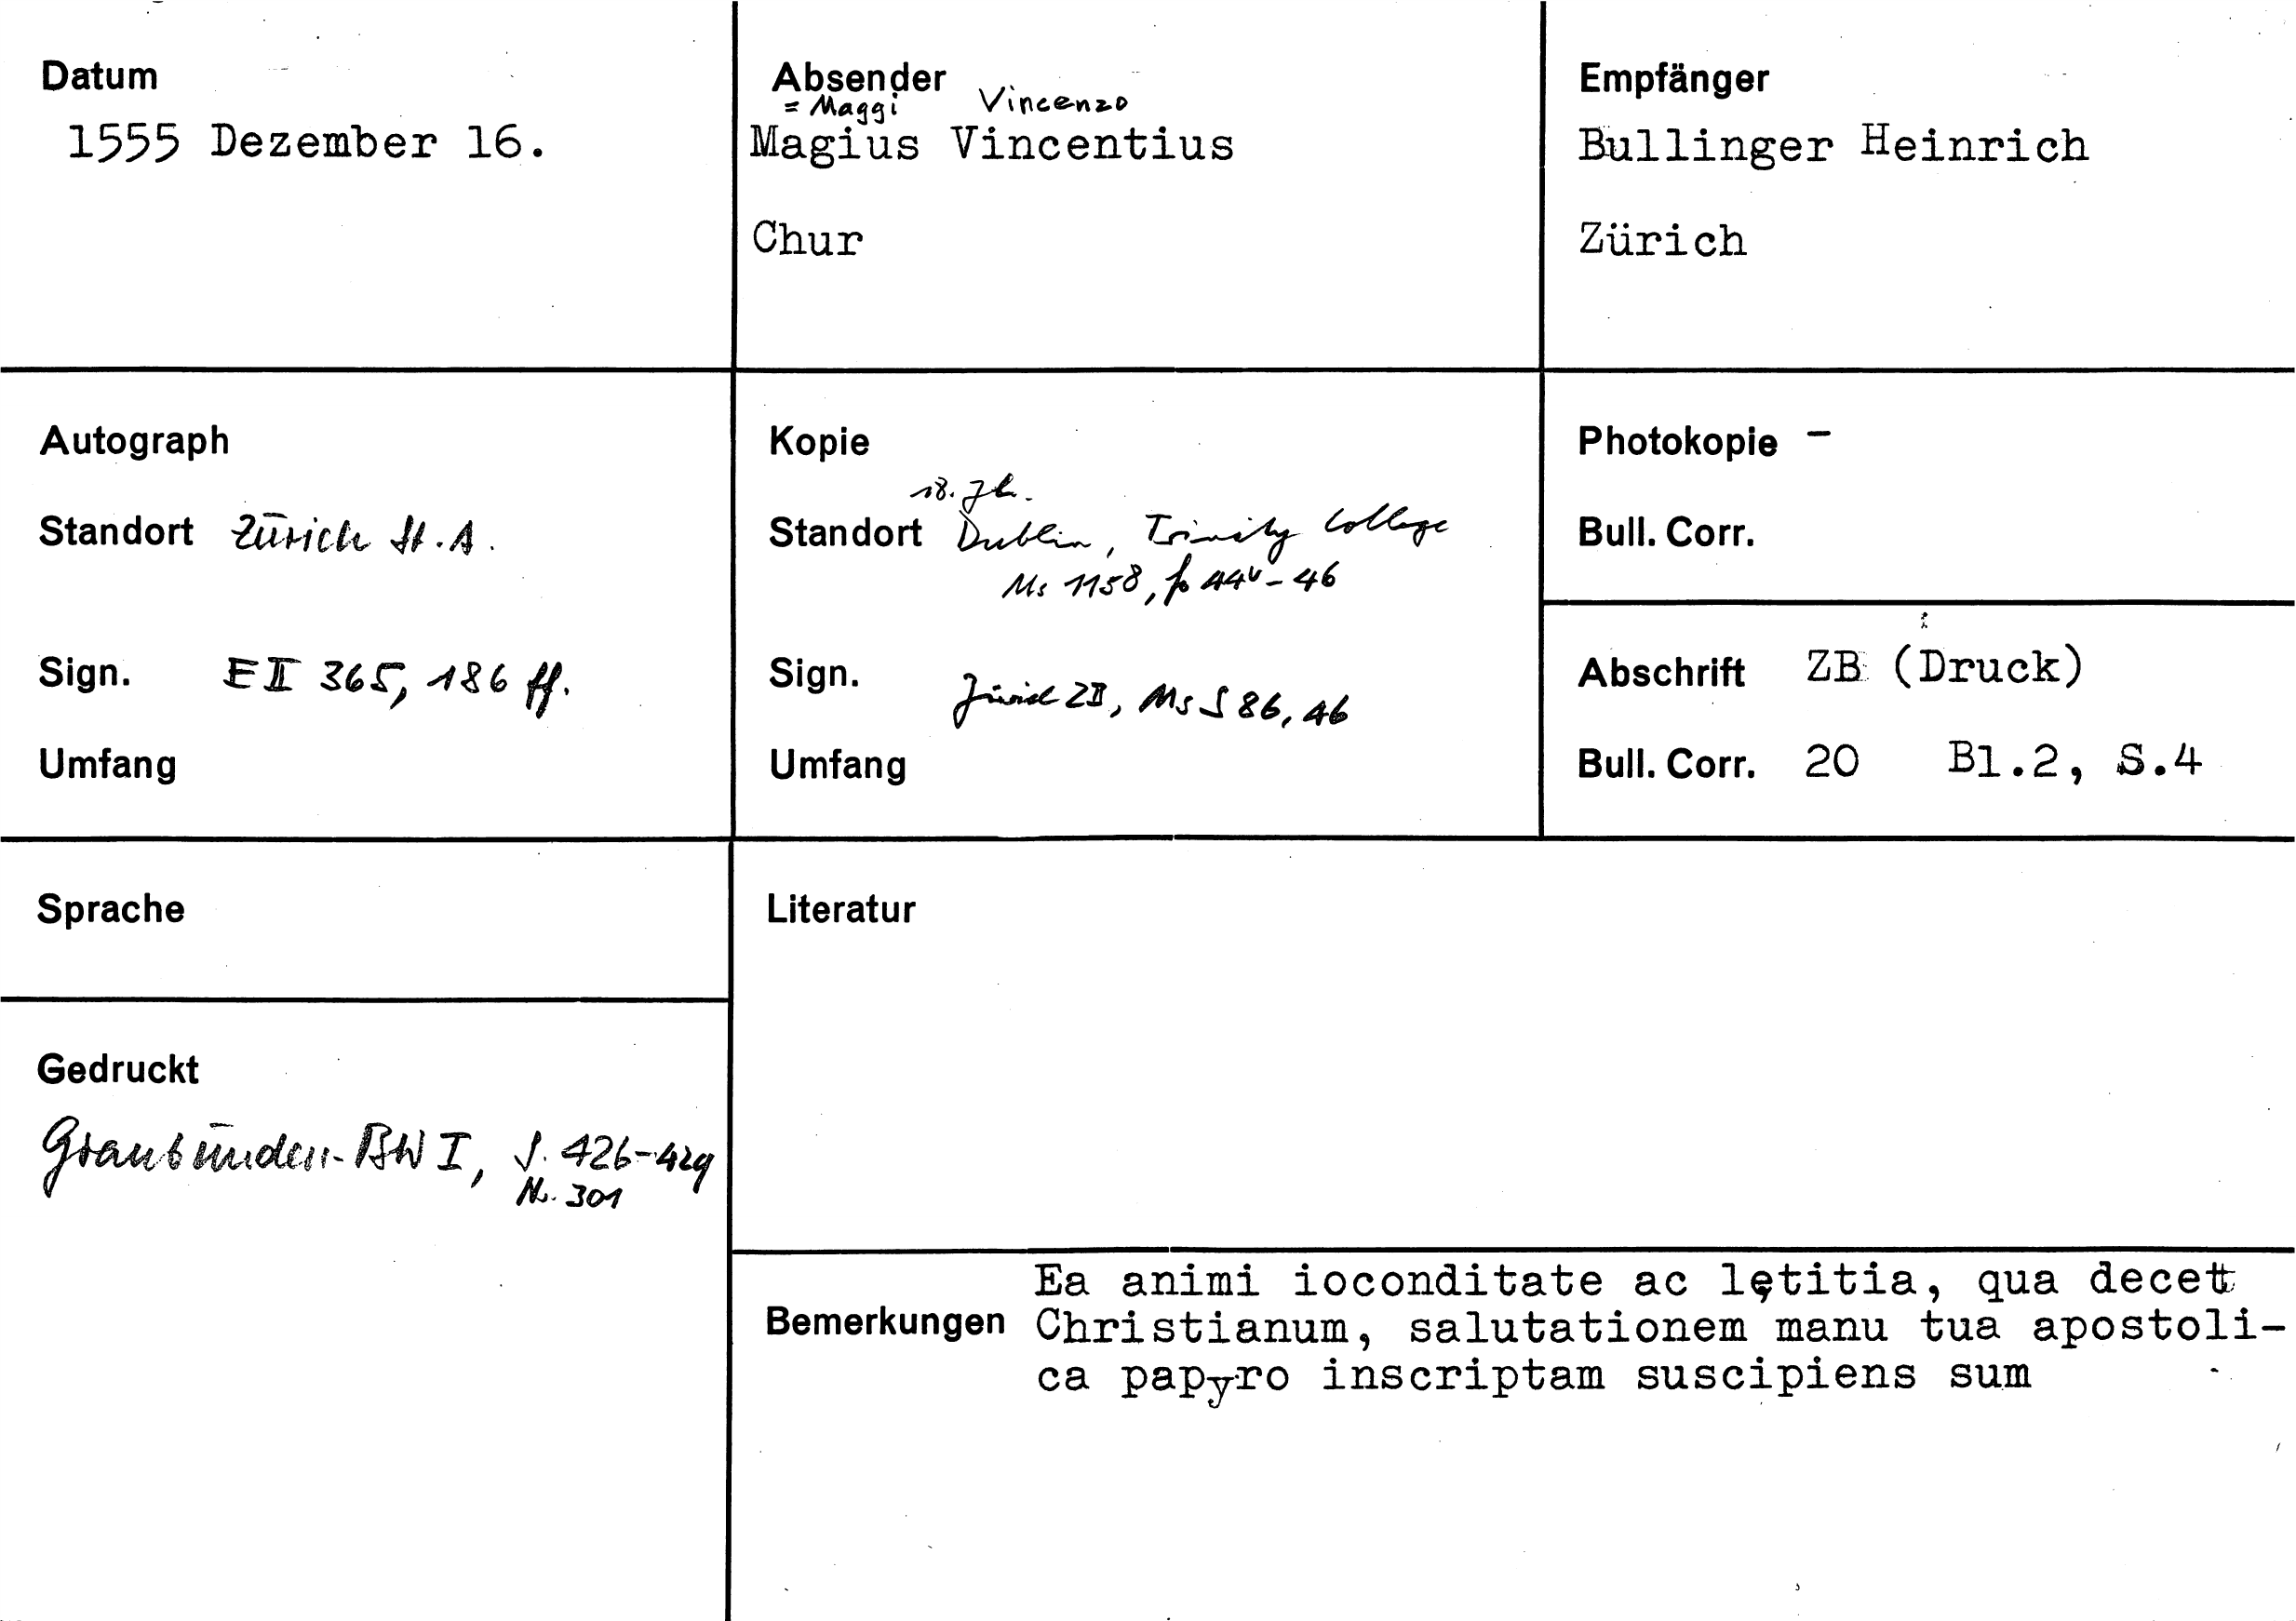 Datum
1555 Dezember 16.
Absender
= Maggi Vincenzo
Magius Vincentius
Chur
Empfänger
Bullinger Heinrich
Zürich
Autograph
Standort Zürich St.A.
Sign. E II 365, 186 ff.
Umfang
Kopie
18. Jh.
Standort Dublin, Trinity College
Ms 1158, fo 44v-46
Sign. Zürich ZB, Ms S 86, 46
Umfang
Photokopie -
Bull. Corr.
Abschrift ZB (Druck)
Bull. Corr. 20 Bl.2, S.4
Sprache
Gedruckt
Graubünden-BW I, S. 426-429
Nr. 301
Literatur
Bemerkungen
Ea animi ioconditate ac lętitia, qua decet
Christianum, salutationem manu tua apostoli-
ca papyro inscriptam suscipiens sum